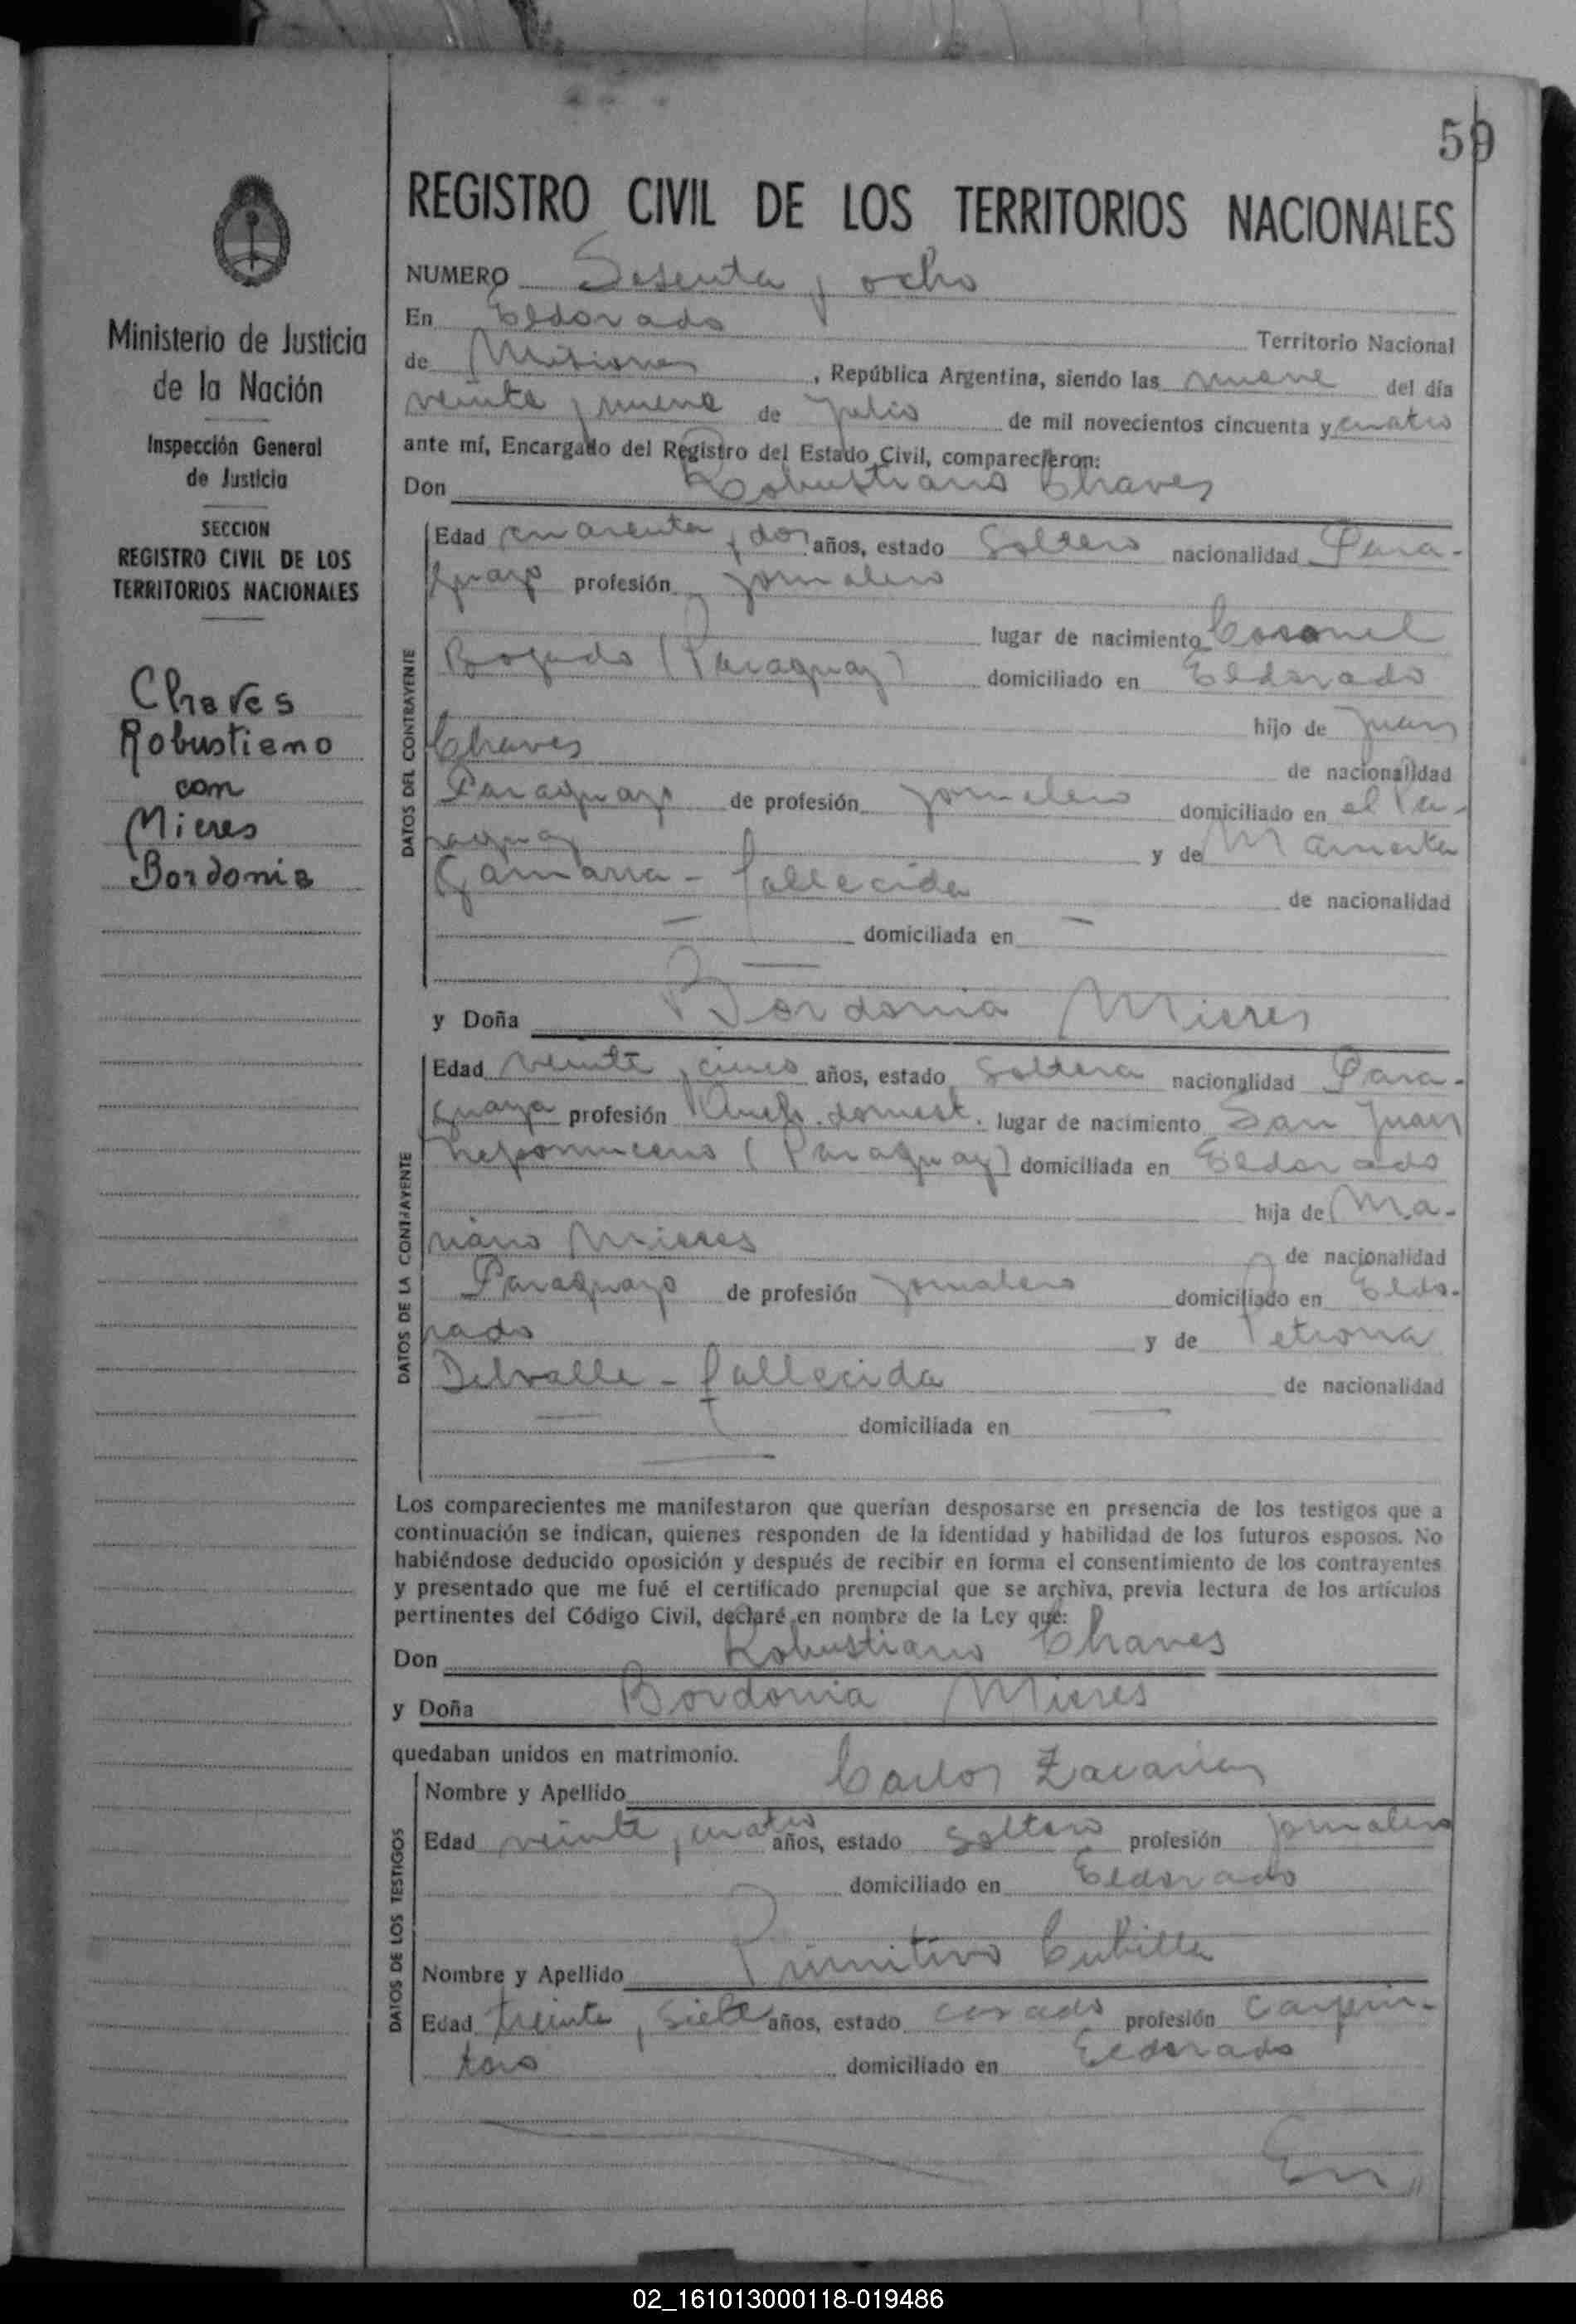 59
REGISTRO CIVIL DE LOS TERRITORIOS NACIONALES
Ministerio de Justicia
de la Nación
Inspección General
de Justicia
SECCION
REGISTRO CIVIL DE LOS
TERRITORIOS NACIONALES
Chaves
Robustiano
con
Mieres
Bordonia
NUMERO Sesenta y ocho
En Eldorado Territorio Nacional
de Misiones, República Argentina, siendo las nueve del día
veinte y nueve de Julio de mil novecientos cincuenta y cuatro
ante mí, Encargado del Registro del Estado Civil, comparecieron:
Don Robustiano Chaves
DATOS DEL CONTRAYENTE
Edad cuarenta y dos años, estado Soltero nacionalidad Para-
guayo profesión jornalero
lugar de nacimiento Coronel
Bogado (Paraguay) domiciliado en Eldorado
hijo de Juan
Chaves de nacionalidad
Paraguayo de profesión jornalero domiciliado en el Pa-
raguay y de
Gamarra - fallecida de nacionalidad
— domiciliada en —
—
y Doña Bordonia Mieres
DATOS DE LA CONTRAYENTE
Edad veinte y cinco años, estado Soltera nacionalidad Para-
guaya profesión domest. lugar de nacimiento San Juan
Nepomuceno (Paraguay) domiciliada en Eldorado
hija de Ma-
riano Mieres de nacionalidad
Paraguayo de profesión jornalero domiciliado en Eldo-
rado y de Petrona
Delvalle - fallecida de nacionalidad
— domiciliada en —
—
Los comparecientes me manifestaron que querían desposarse en presencia de los testigos que a
continuación se indican, quienes responden de la identidad y habilidad de los futuros esposos. No
habiéndose deducido oposición y después de recibir en forma el consentimiento de los contrayentes
y presentado que me fué el certificado prenupcial que se archiva, previa lectura de los artículos
pertinentes del Código Civil, declaré en nombre de la Ley que:
Don Robustiano Chaves
y Doña Bordonia Mieres
quedaban unidos en matrimonio.
DATOS DE LOS TESTIGOS
Nombre y Apellido Carlos Zacarias
Edad veinte y cuatro años, estado soltero profesión jornalero
domiciliado en Eldorado
Nombre y Apellido Primitivo Cubilla
Edad treinta y siete años, estado casado profesión carpin-
tero domiciliado en Eldorado
En //
02_161013000118-019486